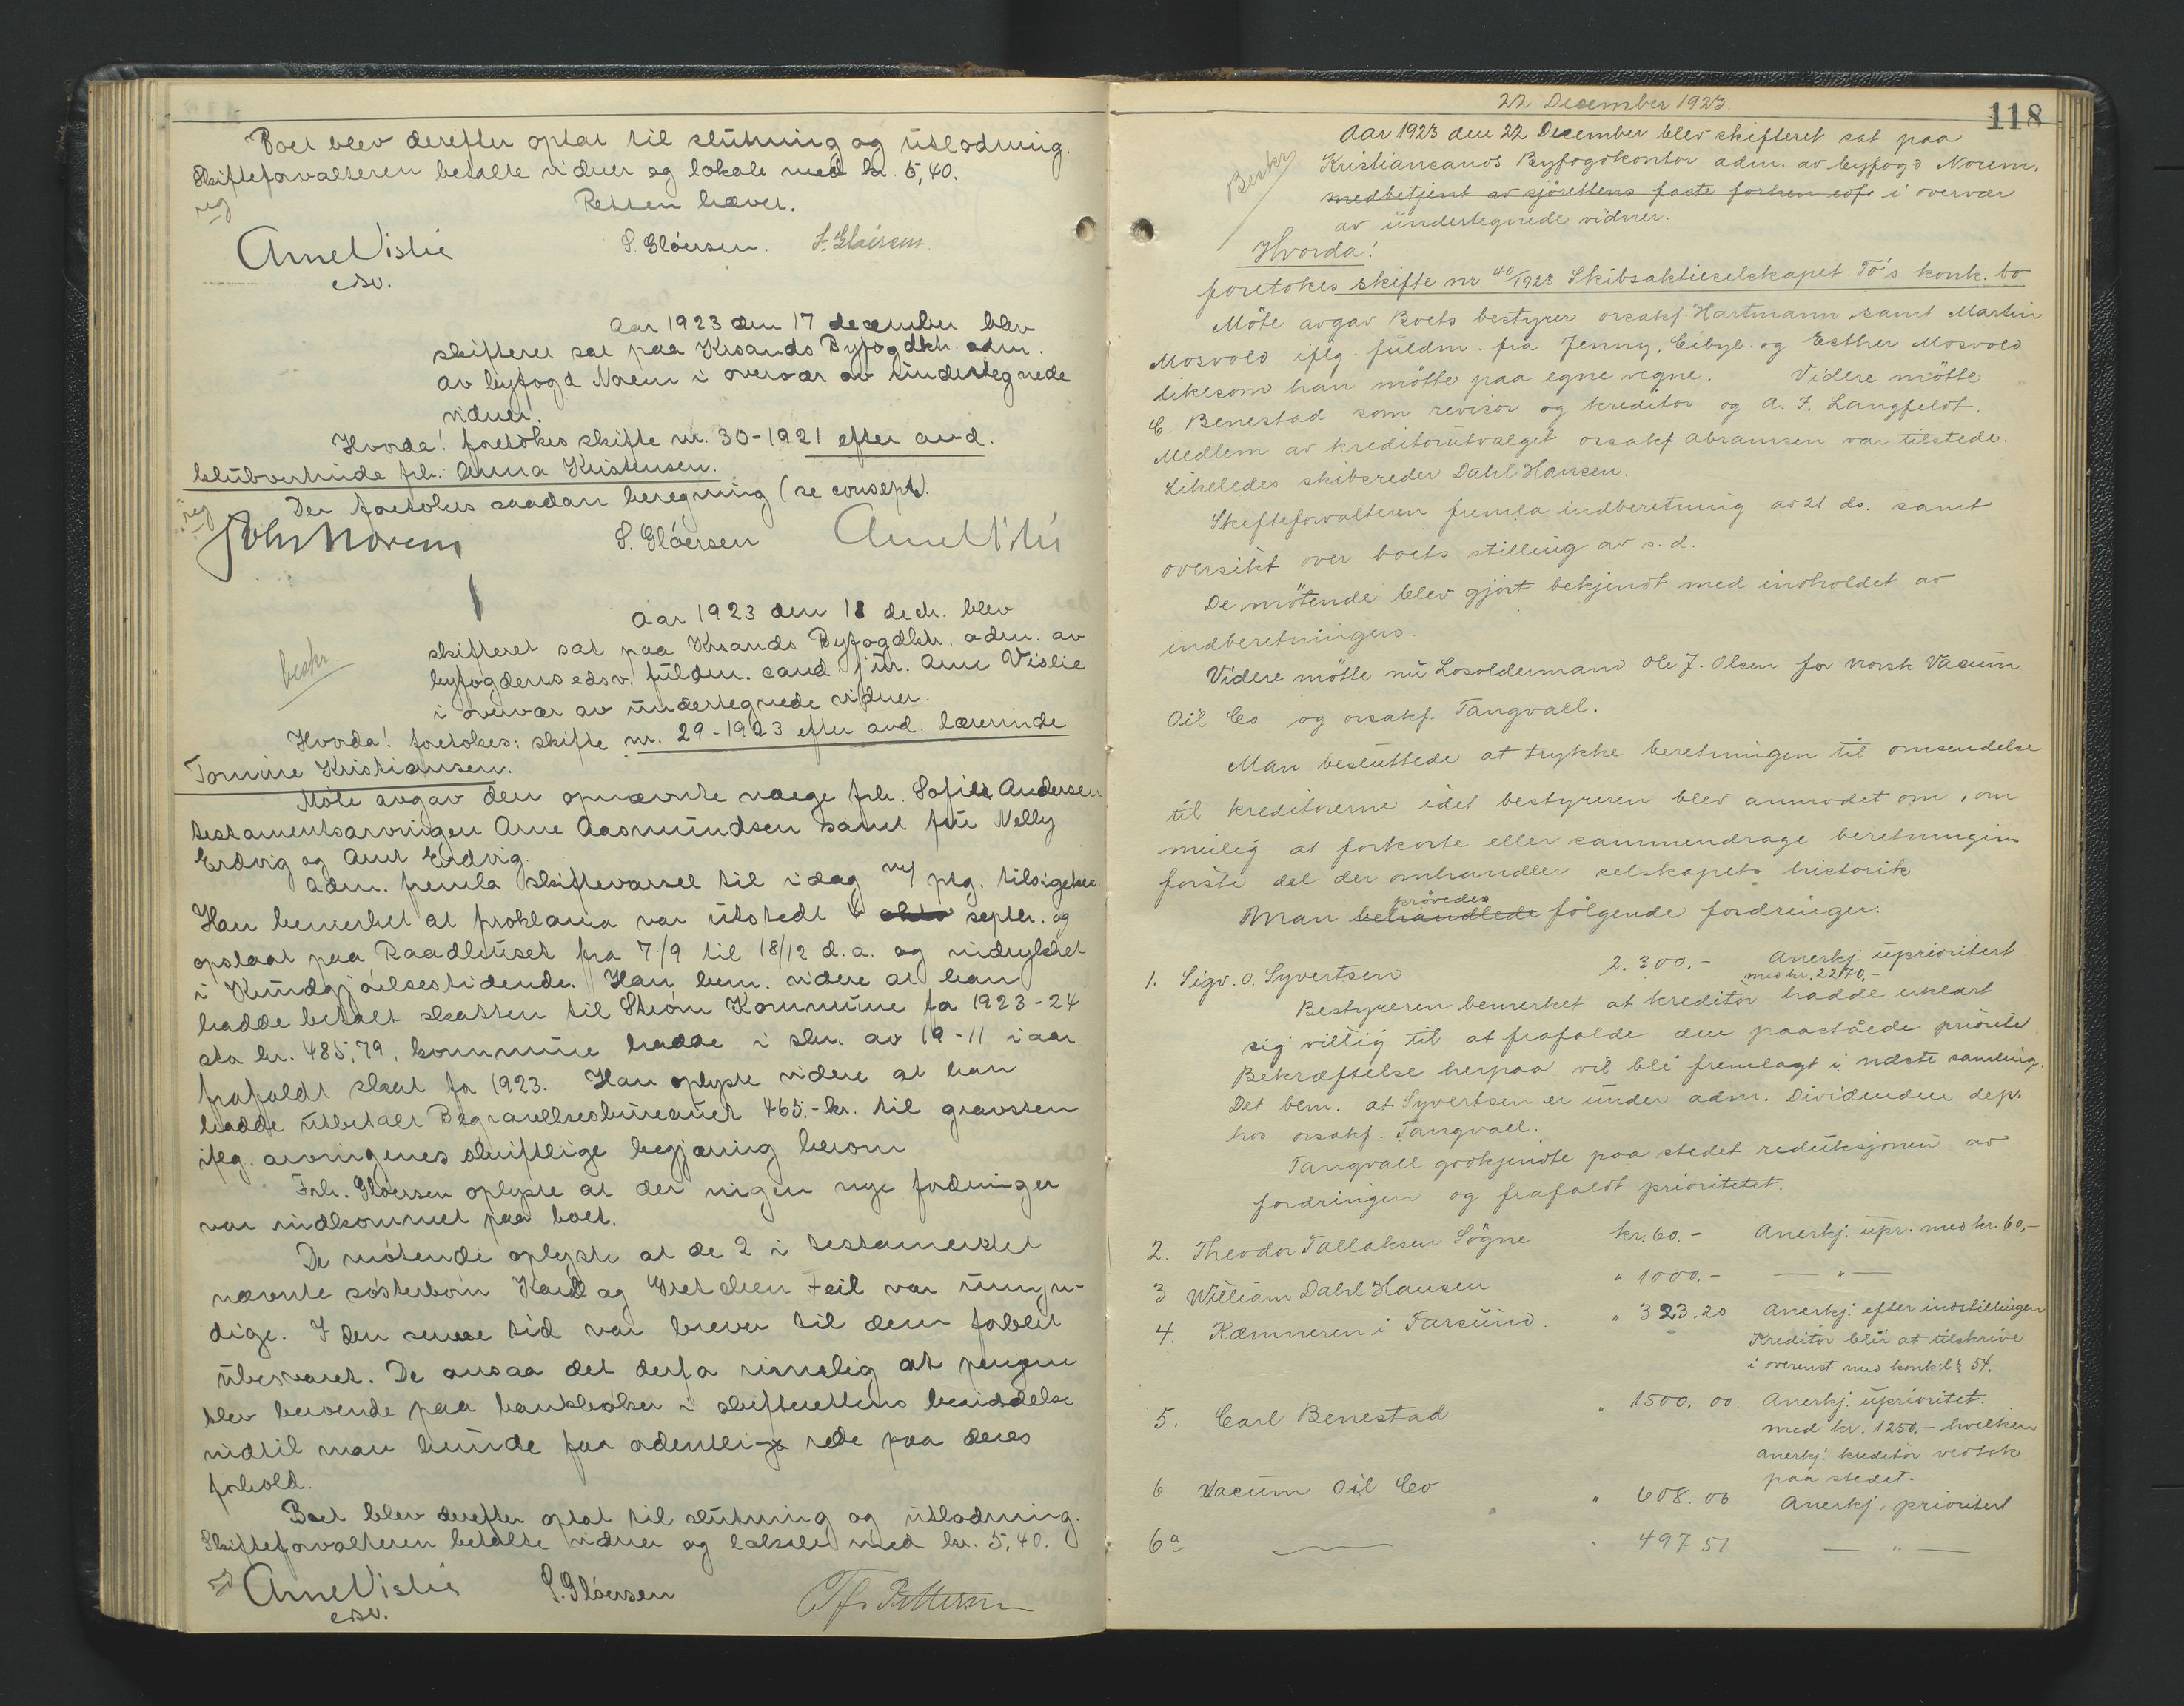 Boet blev derefter optat til slutning og utlodning.
Skifteforvalteren betalte vidner og lokale med kr. 5,40.
reg
Retten hævet.
Arne Vislie
edsv.
S. Glöersen. F. Glöersen.
Aar 1923 den 17 december blev
skifteret sat paa Krsands Byfogdktr. adm.
av byfogd Norem i overvær av undertegnede
vidner.
Hvorda! foretokes skifte nr. 30-1921 efter avd.
klubvertinde frk. Anna Kristensen.
Der foretokes saadan beregning (se consept).
reg
John Norem S. Glöersen Arne Vislie
Aar 1923 den 18 decbr. blev
beskr
skifteret sat paa Krsands Byfogdktr. adm. av
byfogdens edsv. fuldm. cand jur. Arne Vislie
i overvær av undertegnede vidner.
Hvorda! foretokes: skifte nr. 29-1923 efter avd. lærerinde
Tomine Kristiansen.
Möte avgav den opnævnte værge frk. Sofie Andersen
testamentsarvingen Arne Aasmundsen samt fru Nelly
Erdvig og Amt Erdvig.
Adm. fremla skiftevarsel til idag m/ ptg. tilsigelser.
Han bemerket at proklama var utstedt 6 okto septbr. og
opslaat paa Raadhuset fra 7/9 til 18/12 d.a. og indrykket
i Kundgjörelsestidende. Han bem. videre at han
hadde betalt skatten til Ström Kommune for 1923-24
sto kr. 485,79, kommune hadde i skr. av 19-11 i aar
frafaldt skat for 1923. Han oplyste videre at han
hadde utbetalt Begravelsesbureauet 465.- kr. til gravsten
iflg. arvingenes skriftlige begjæring herom
Frk. Glöersen oplyste at der ingen nye fordringer
var indkommet paa boet.
De mötende oplyste at de 2 i testamentet
nævnte sösterbörn Karl og Gretchen Feil var umyn-
dige. I den senere tid var brever til dem forblit
ubesvaret. De ansaa det derfor rimelig at pengene
blev beroende paa bankböker i skifterettens besiddelse
indtil man kunde faa ordentlig rede paa deres
forhold.
Boet blev derefter optat til slutning og utlodning.
Skifteforvalteren betalte vidner og lokale med kr. 5,40.
Arne Vislie S. Glöersen
edsv.
22 December 1923.
118
Aar 1923 den 22 December blev skifteret sat paa
Beskr
Kristiansands Byfogdkontor adm. av byfogd Norem.
medbetjent av sjörettens faste i overvær
av undertegnede vidner.
Hvorda!
foretokes skifte nr. 40/1923 Skibsaktieselskapet To's konk. bo
Möte avgav Boets bestyrer orsakf. Hartmann samt Martin
Mosvold iflg. fuldm. fra Jenny, Cibyl og Esther Mosvold
likesom han mötte paa egne vegne. Videre mötte
C. Benestad som revisor og kreditor og A. F. Langfeldt.
Medlem av kreditorutvalget orsakf Abramsen var tilstede.
Likeledes skibsreder Dahl Hansen.
Skifteforvalteren fremla indberetning av 21 ds. samt
oversikt over boets stilling av s.d.
De mötende blev gjort bekjendt med indholdet av
indberetningen.
Videre mötte nu Losoldermand Ole J. Olsen for Norsk Vacum
Oil Co og orsakf. Tangvall.
Man besluttede at trykke beretningen til omsendelse
til kreditorerne idet bestyreren blev anmodet om, om
mulig at forkorte eller sammendrage beretningen
förste del der omhandler selskapets historik
Man behandlede prövedes fölgende fordringer:
1. Sigv. O. Syvertsen 2.300.- Anerkj. uprioritert
med kr. 2270,-
Bestyreren bemerket at kreditor hadde erklært
sig villig til at frafalde den paastaaede prioritet.
Bekræftelse herpaa vil bli fremlagt i næste samling.
Det bem. at Syvertsen er under adm. Dividenden dep.
hos orsakf. Tangvall.
Tangvall godkjendte paa stedet reduksjonen av
fordringen og frafaldt prioritetet.
2. Theodor Tallaksen Sögne kr. 60.- Anerkj. upr. med kr. 60,-
3 William Dahl Hansen " 1000.- — " —
4. Kæmneren i Farsund. " 323.20 Anerkj. efter indstillingen
Kreditor blir at tilskrive
i overenst. med konk.l. § 54.
5. Carl Benestad " 1500.00. Anerkj. uprioritet.
med kr. 1250,- hvilken
Anerkj. kreditor vedtok
paa stedet.
6 Vacum Oil Co " 608.06 Anerkj. prioritert
6a — " 497 51 — " —